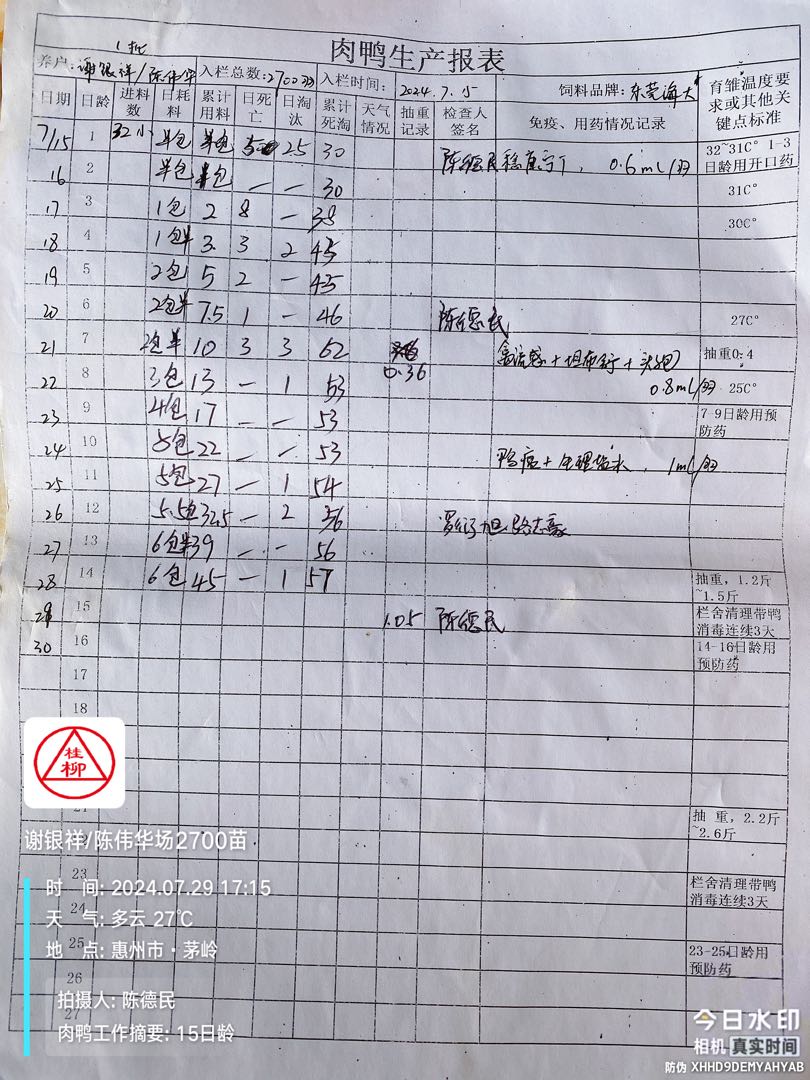 肉鸭生产报表
1批
养户:谢银祥/陈伟华 入栏总数:2700羽 入栏时间: 2024.7.15 饲料品牌:东莞海大 育雏温度要求或其他关键点标准
日期 日龄 进料数 日耗料 累计用料 日死亡 日淘汰 累计死淘 天气情况 抽重记录 检查人签名 免疫、用药情况记录
7/15 1 32小 半包 半包 5 25 30 陈德民 0.6mL/羽 32~31C° 1-3日龄用开口药
16 2 半包 半包 — — 30 31C°
17 3 1包 2 8 — 38 30C°
18 4 1包半 3. 3 2 43
19 5 2包 5 2 — 45
20 6 2包半 7.5 1 — 46 陈德民 27C°
21 7 2包半 10 3 3 52 0.36 禽流感+坦布苏+头孢 抽重0:4
22 8 3包 13 — 1 53 0.8mL/羽 25C°
23 9 4包 17 — — 53 7-9日龄用预防药
24 10 5包 22 — — 53 鸭瘟+生理盐水, 1mL/羽
25 11 5包 27 — 1 54
26 12 5.5包 32.5 — 2 56
27 13 6包半 39 — — 56
28 14 6包 45 — 1 57 抽重, 1.2斤~1.5斤
29 15 1.05 陈德民 栏舍清理带鸭消毒连续3天
30 16 14-16日龄用预防药
17
18
桂柳
21
抽 重, 2.2斤~2.6斤
谢银祥/陈伟华场2700苗
23 栏舍清理带鸭消毒连续3天
时 间: 2024.07.29 17:15
24
天 气: 多云 27℃
25 23-25日龄用预防药
地 点: 惠州市·茅岭
26
拍摄人: 陈德民
27
肉鸭工作摘要: 15日龄
今日水印
相机 真实时间
防伪 XHHD9DEMYAHYAB